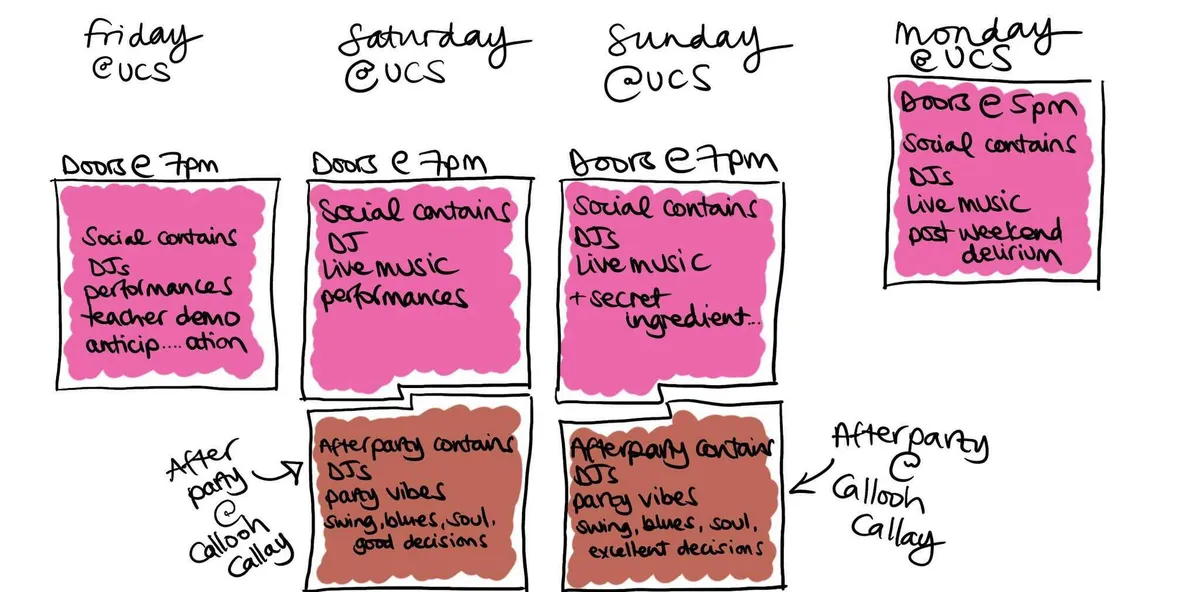 Friday
@UCS
Doors @ 7pm
Social contains
DJs
performances
teacher demo
anticip....ation
Saturday
@UCS
Doors @ 7pm
Social contains
DJ
Live music
performances
After
party
@
Callooh
Callay
Afterparty contains
DJs
party vibes
swing, blues, soul,
good decisions
Sunday
@UCS
Doors @ 7pm
Social contains
DJs
Live music
+ secret
ingredient...
Afterparty contains
DJs
party vibes
swing, blues, soul,
excellent decisions
Afterparty
@
Callooh
Callay
Monday
@UCS
Doors @ 5pm
Social contains
DJs
Live music
post weekend
delirium